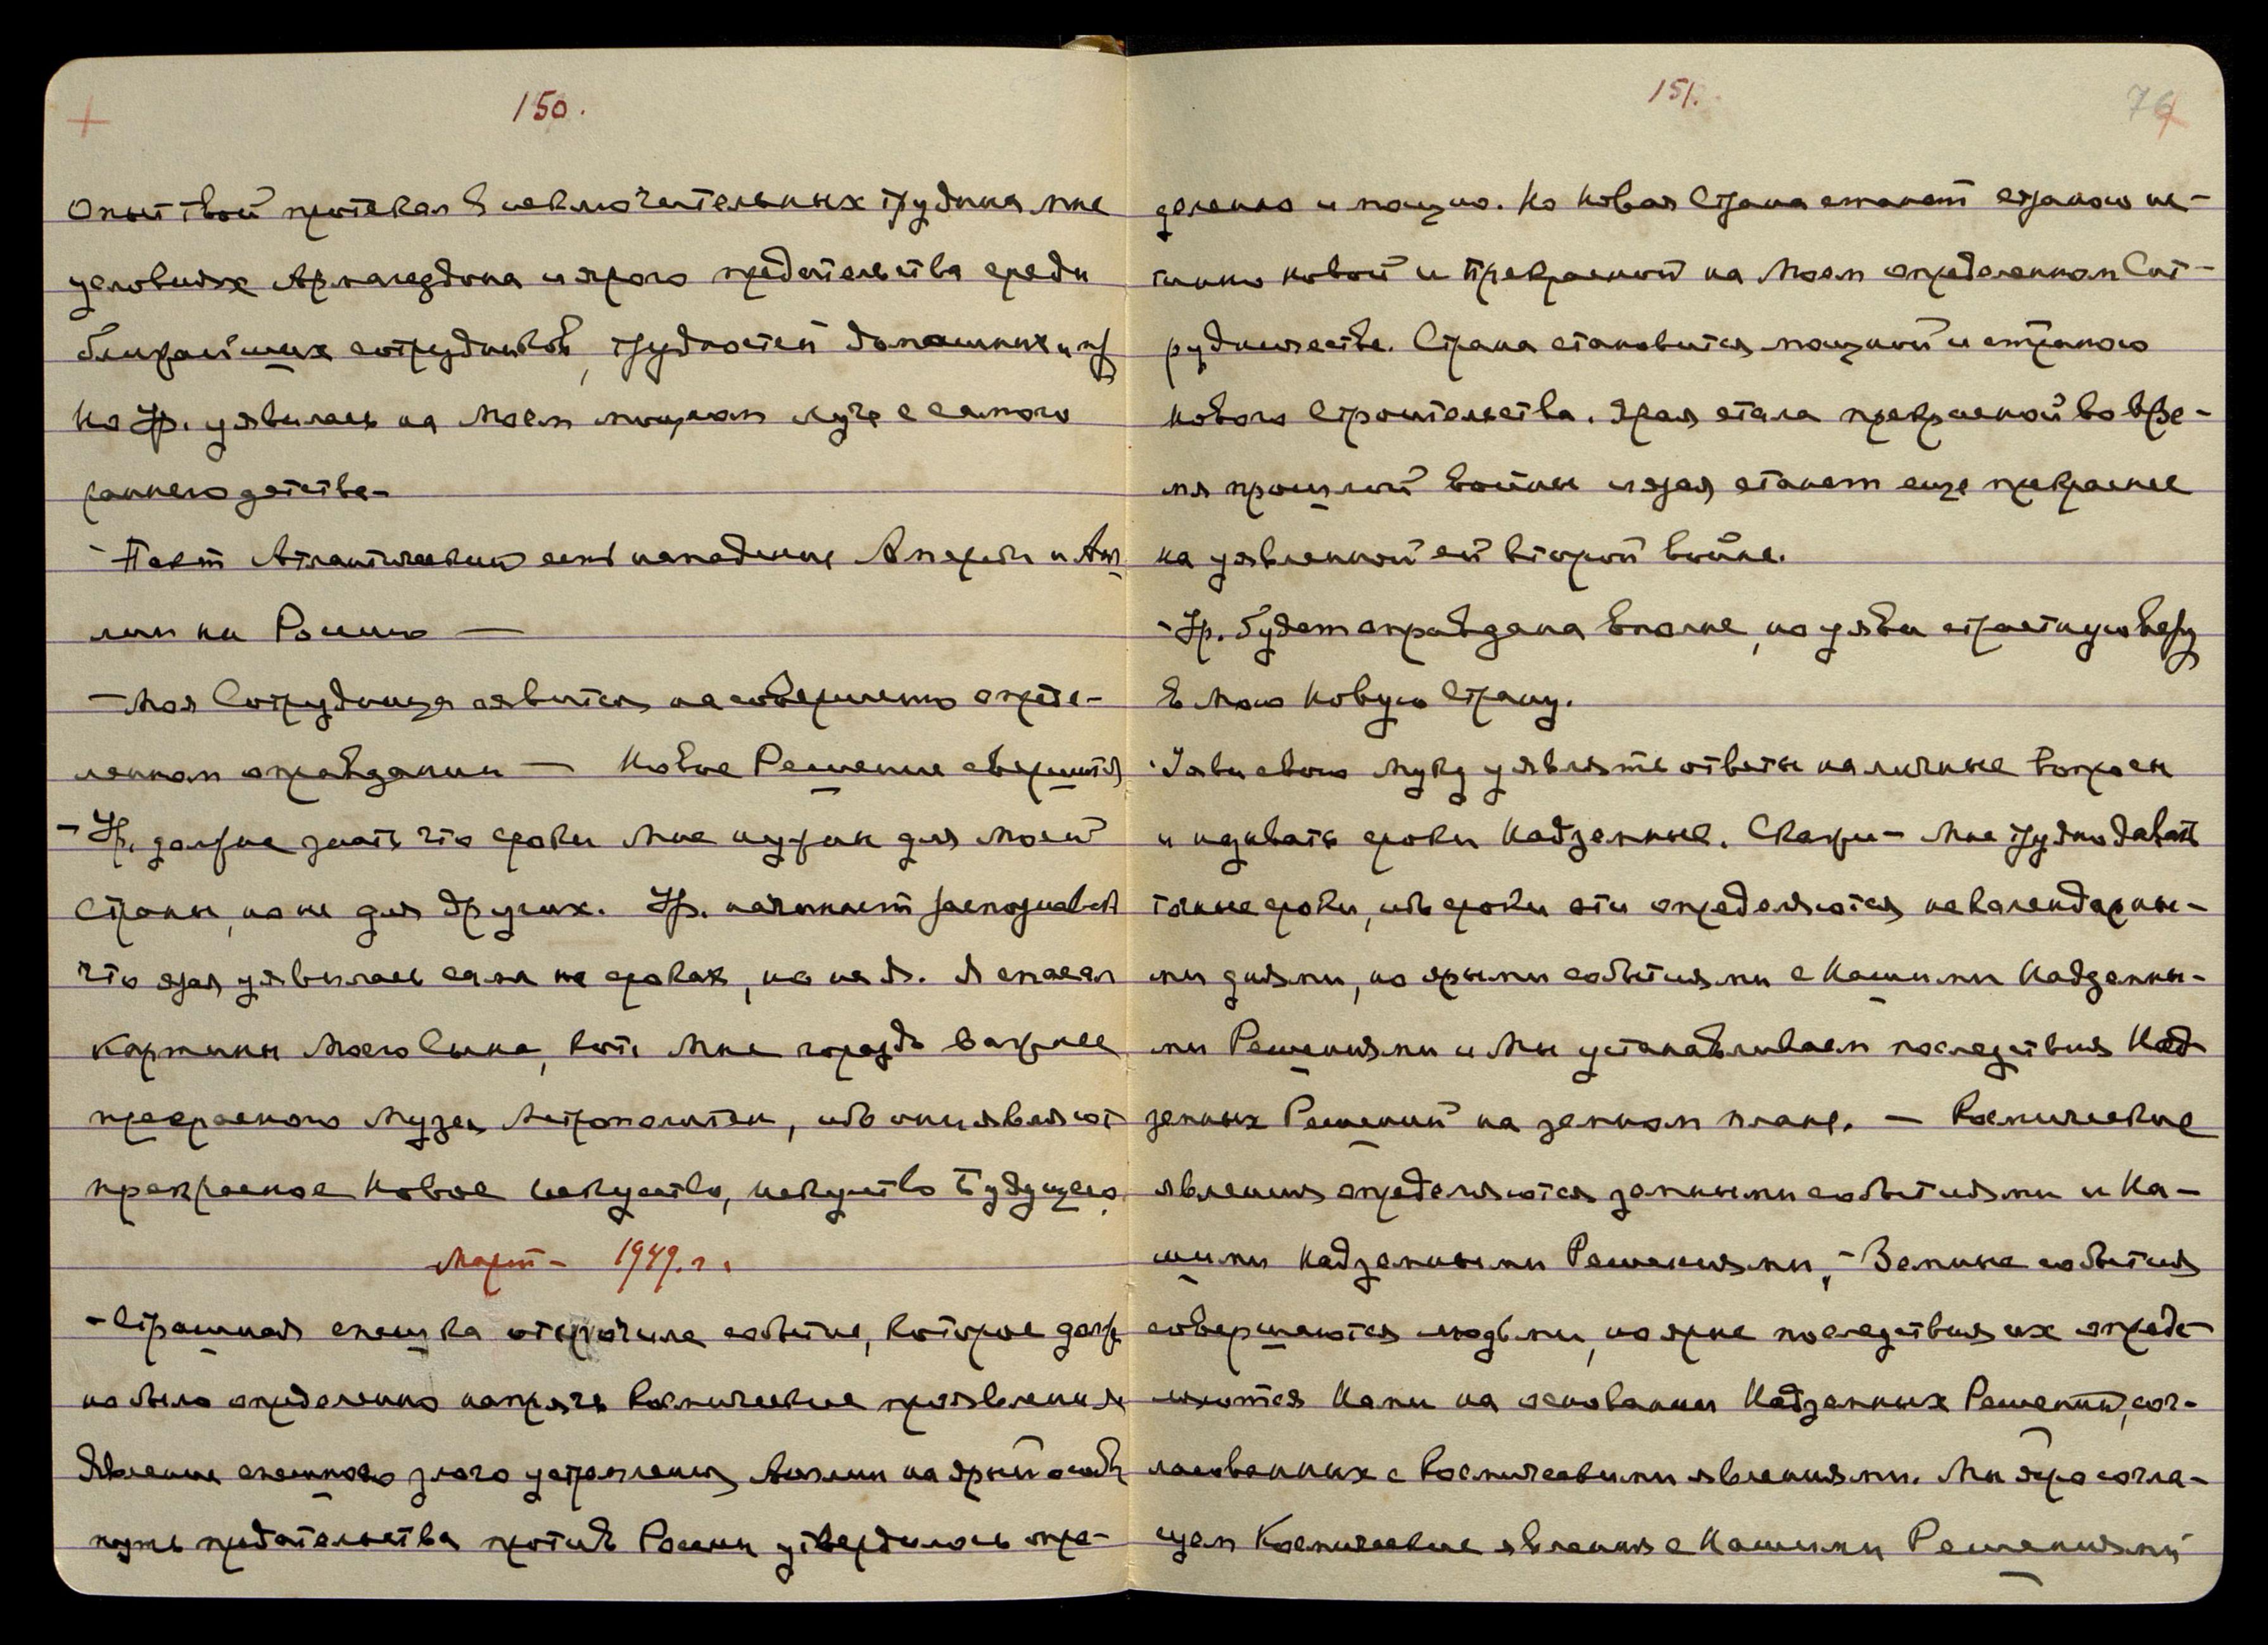 150.
Опыт твой протекал в исключительных трудных мне
условиях Армагеддона и ярого предательства среди
ближайших сотрудников, трудностей домашних и пр
Но Ур. уявилась на Моем мощном Луче с самого
раннего детства-
- Пакт Атлантический есть нападение Америки и Анг
лии на Россию —
- Моя Сотрудница явится на совершенно опреде-
ленном оправдании — Новое Решение свершится
- Ур. должна знать что сроки Мне нужны для Моей
Страны, но не для других. Ур. начинает распознавать
что ярая уявилась сама на сроках, но не Я. Я спасал
картины Моего Сына, Мне гораздо важнее
прекрасного Музея Метрополитен, ибо они являют
прекрасное Новое искусство, искусство Будущего.
Март - 1949. г.
- Страшная спешка отсрочила событие, которое долж
но было определенно напрячь космические проявления
Явление спешного злого устремления Англии на ярый особый
путь предательства против России утвердилось опре-
151.
76
деленно и мощно. Но Новая Страна станет страною ис-
тинно новой и прекрасной на Моем определенном Сот-
рудничестве. Страна становится мощной и страною
нового строительства. Ярая стала прекрасной во вре-
мя прошлой войны и ярая станет еще прекраснее
на уявленной ей второй войне.
- Ур. будет оправдана вполне, но уяви страстную веру
в Мою Новую Страну.
- Уяви свою муку уявлять ответы на личные вопросы
и называть сроки Надземные. Скажи - Мне трудно давать
точные сроки, ибо сроки эти определяются не календарны-
ми днями, но ярыми событиями с Нашими Надземны-
ми Решениями и Мы устанавливаем последствия Над
земных Решений на земном плане. — Космические
явления определяются земными событиями и На-
шими Надземными Решениями, - Земные события
совершаются людьми, но ярые последствия их опреде
ляются Нами на основании Надземных Решений, сог-
ласованных с космическими явлениями. Мы яро согла-
суем Космические явления с Нашими Решениями